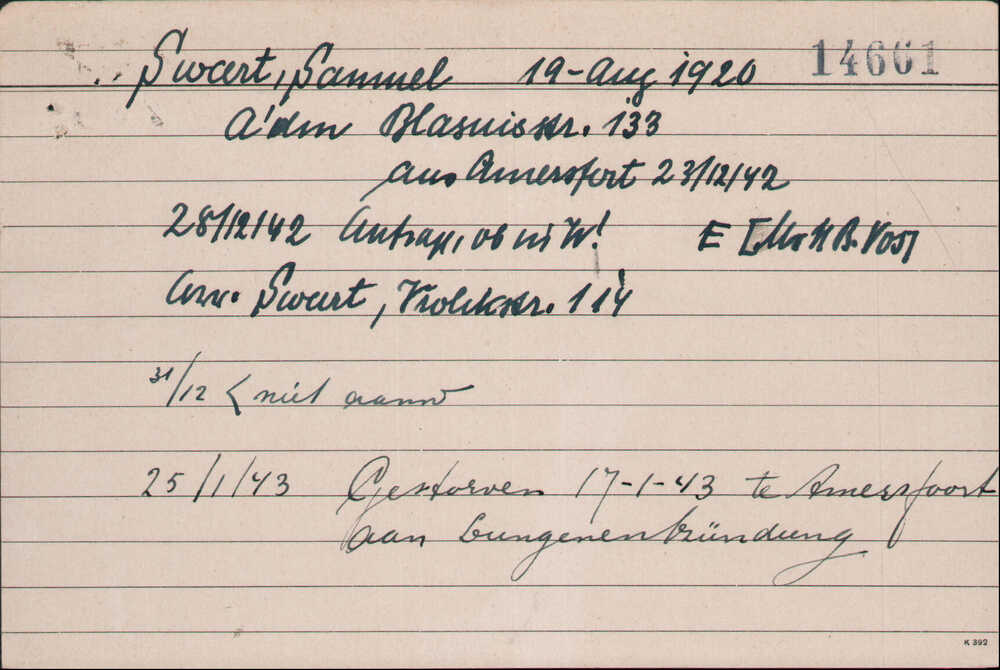 Swart, Samuel 19-Aug 1920 14661
A'dm Blasiusstr. 133
aus Amersfort 23/12/42
28/12/42 Antrag, ob in W! E [Mr H B. Vos]
Anv. Swart, Vrolikstr. 114
31/12 < niet aanw
25/1/43 Gestorven 17-1-43 te Amersfoort
aan Lungenentzündung
K 392